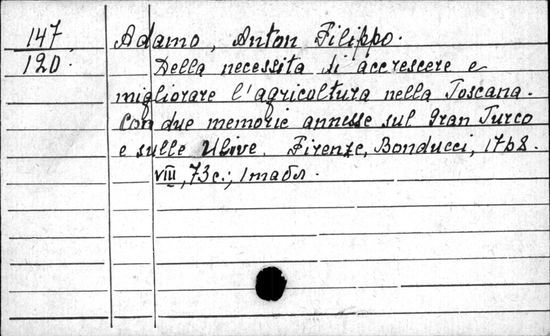 147 Adamo, Anton Filippo.
120. Della necessita di accrescere e
migliorare l'agricoltura nella Toscana.
Con due memorie annesse sul gran Turco
e sulle Ulive. Firenze, Bonducci, 1768.
VIII, 73c.; 1 табл.